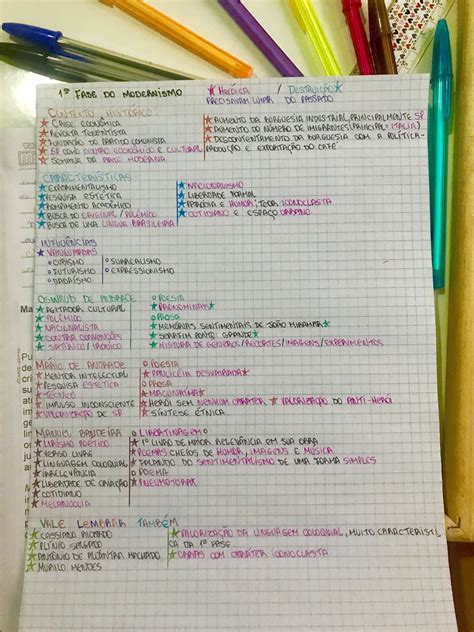 1ª FASE DO MODERNISMO ★ HERÓICA / DESTRUIÇÃO ★
PRECISAVAM LIVRAR DO PASSADO
CONTEXTO HISTÓRICO
★ CRISE ECONÔMICA
★ REVOLTA TENENTISTA
★ FUNDAÇÃO DO PARTIDO COMUNISTA
★ SP COMO CENTRO ECONÔMICO E CULTURAL
★ SEMANA DA ARTE MODERNA
★ AUMENTO DA BURGUESIA INDUSTRIAL, PRINCIPALMENTE SP
★ AUMENTO DO NÚMERO DE IMIGRANTES (PRINCIPAL: ITÁLIA)
★ DESCONTENTAMENTO DA BURGUESIA COM A POLÍTICA-
PRODUÇÃO E EXPORTAÇÃO DO CAFÉ
CARACTERÍSTICAS
★ EXPERIMENTALISMO
★ PESQUISA ESTÉTICA
★ ROMPIMENTO ACADÊMICO
★ BUSCA DO ORIGINAL / POLÊMICO
★ BUSCA DE UMA LÍNGUA BRASILEIRA
★ NACIONALISMO
★ LIBERDADE FORMAL
★ PARÓDIA E HUMOR; TEOR ICONOCLASTA
★ COTIDIANO E ESPAÇO URBANO
INFLUÊNCIAS
★ VANGUARDAS
○ CUBISMO
○ FUTURISMO
○ DADAÍSMO
○ SURREALISMO
○ EXPRESSIONISMO
OSWALD DE ANDRADE
★ AGITADOR CULTURAL
★ POLÊMICO
★ NACIONALISTA
★ CONTRA CONVENÇÕES
★ SATÍRICO / IRÔNICO
○ POESIA
★ PRONOMINAIS ★
○ PROSA
★ MEMÓRIAS SENTIMENTAIS DE JOÃO MIRAMAR ★
★ SERAFIM PONTE GRANDE ★
★ MISTURA DE GÊNEROS / RECORTES / IMAGENS / EXPERIMENTOS
MÁRIO DE ANDRADE
★ MENTOR INTELECTUAL
★ PESQUISA ESTÉTICA
★ TÉCNICO
★ IMPULSO INCONSCIENTE
★ VALORIZAÇÃO DE SP
○ POESIA
★ PAULICÉIA DESVAIRADA ★
○ PROSA
★ MACUNAÍMA ★
★ HERÓI SEM NENHUM CARÁTER ★ VALORIZAÇÃO DO ANTI-HERÓI
★ SÍNTESE ÉTNICA
MANUEL BANDEIRA
★ LIRISMO POÉTICO
★ VERSO LIVRE
★ LINGUAGEM COLOQUIAL
★ IRRELEVÂNCIA
★ LIBERDADE DE CRIAÇÃO
★ COTIDIANO
★ MELANCOLIA
○ LIBERTINAGEM ○
★ 1º LIVRO DE MAIOR RELEVÂNCIA EM SUA OBRA
★ POEMAS CHEIOS DE HUMOR, IMAGENS E MÚSICA
★ FALANDO DO SENTIMENTALISMO DE UMA FORMA SIMPLES
○ POEMA
★ PNEUMOTÓRAX
VALE LEMBRAR TAMBÉM
★ CASSIANO RICARDO
★ PLÍNIO SALGADO
★ ANTÔNIO DE ALCÂNTARA MACHADO
★ MURILO MENDES
★ VALORIZAÇÃO DA LINGUAGEM COLOQUIAL, MUITO CARACTERÍSTI
CA DA 1ª FASE
★ OBRAS COM CARÁTER ICONOCLASTA